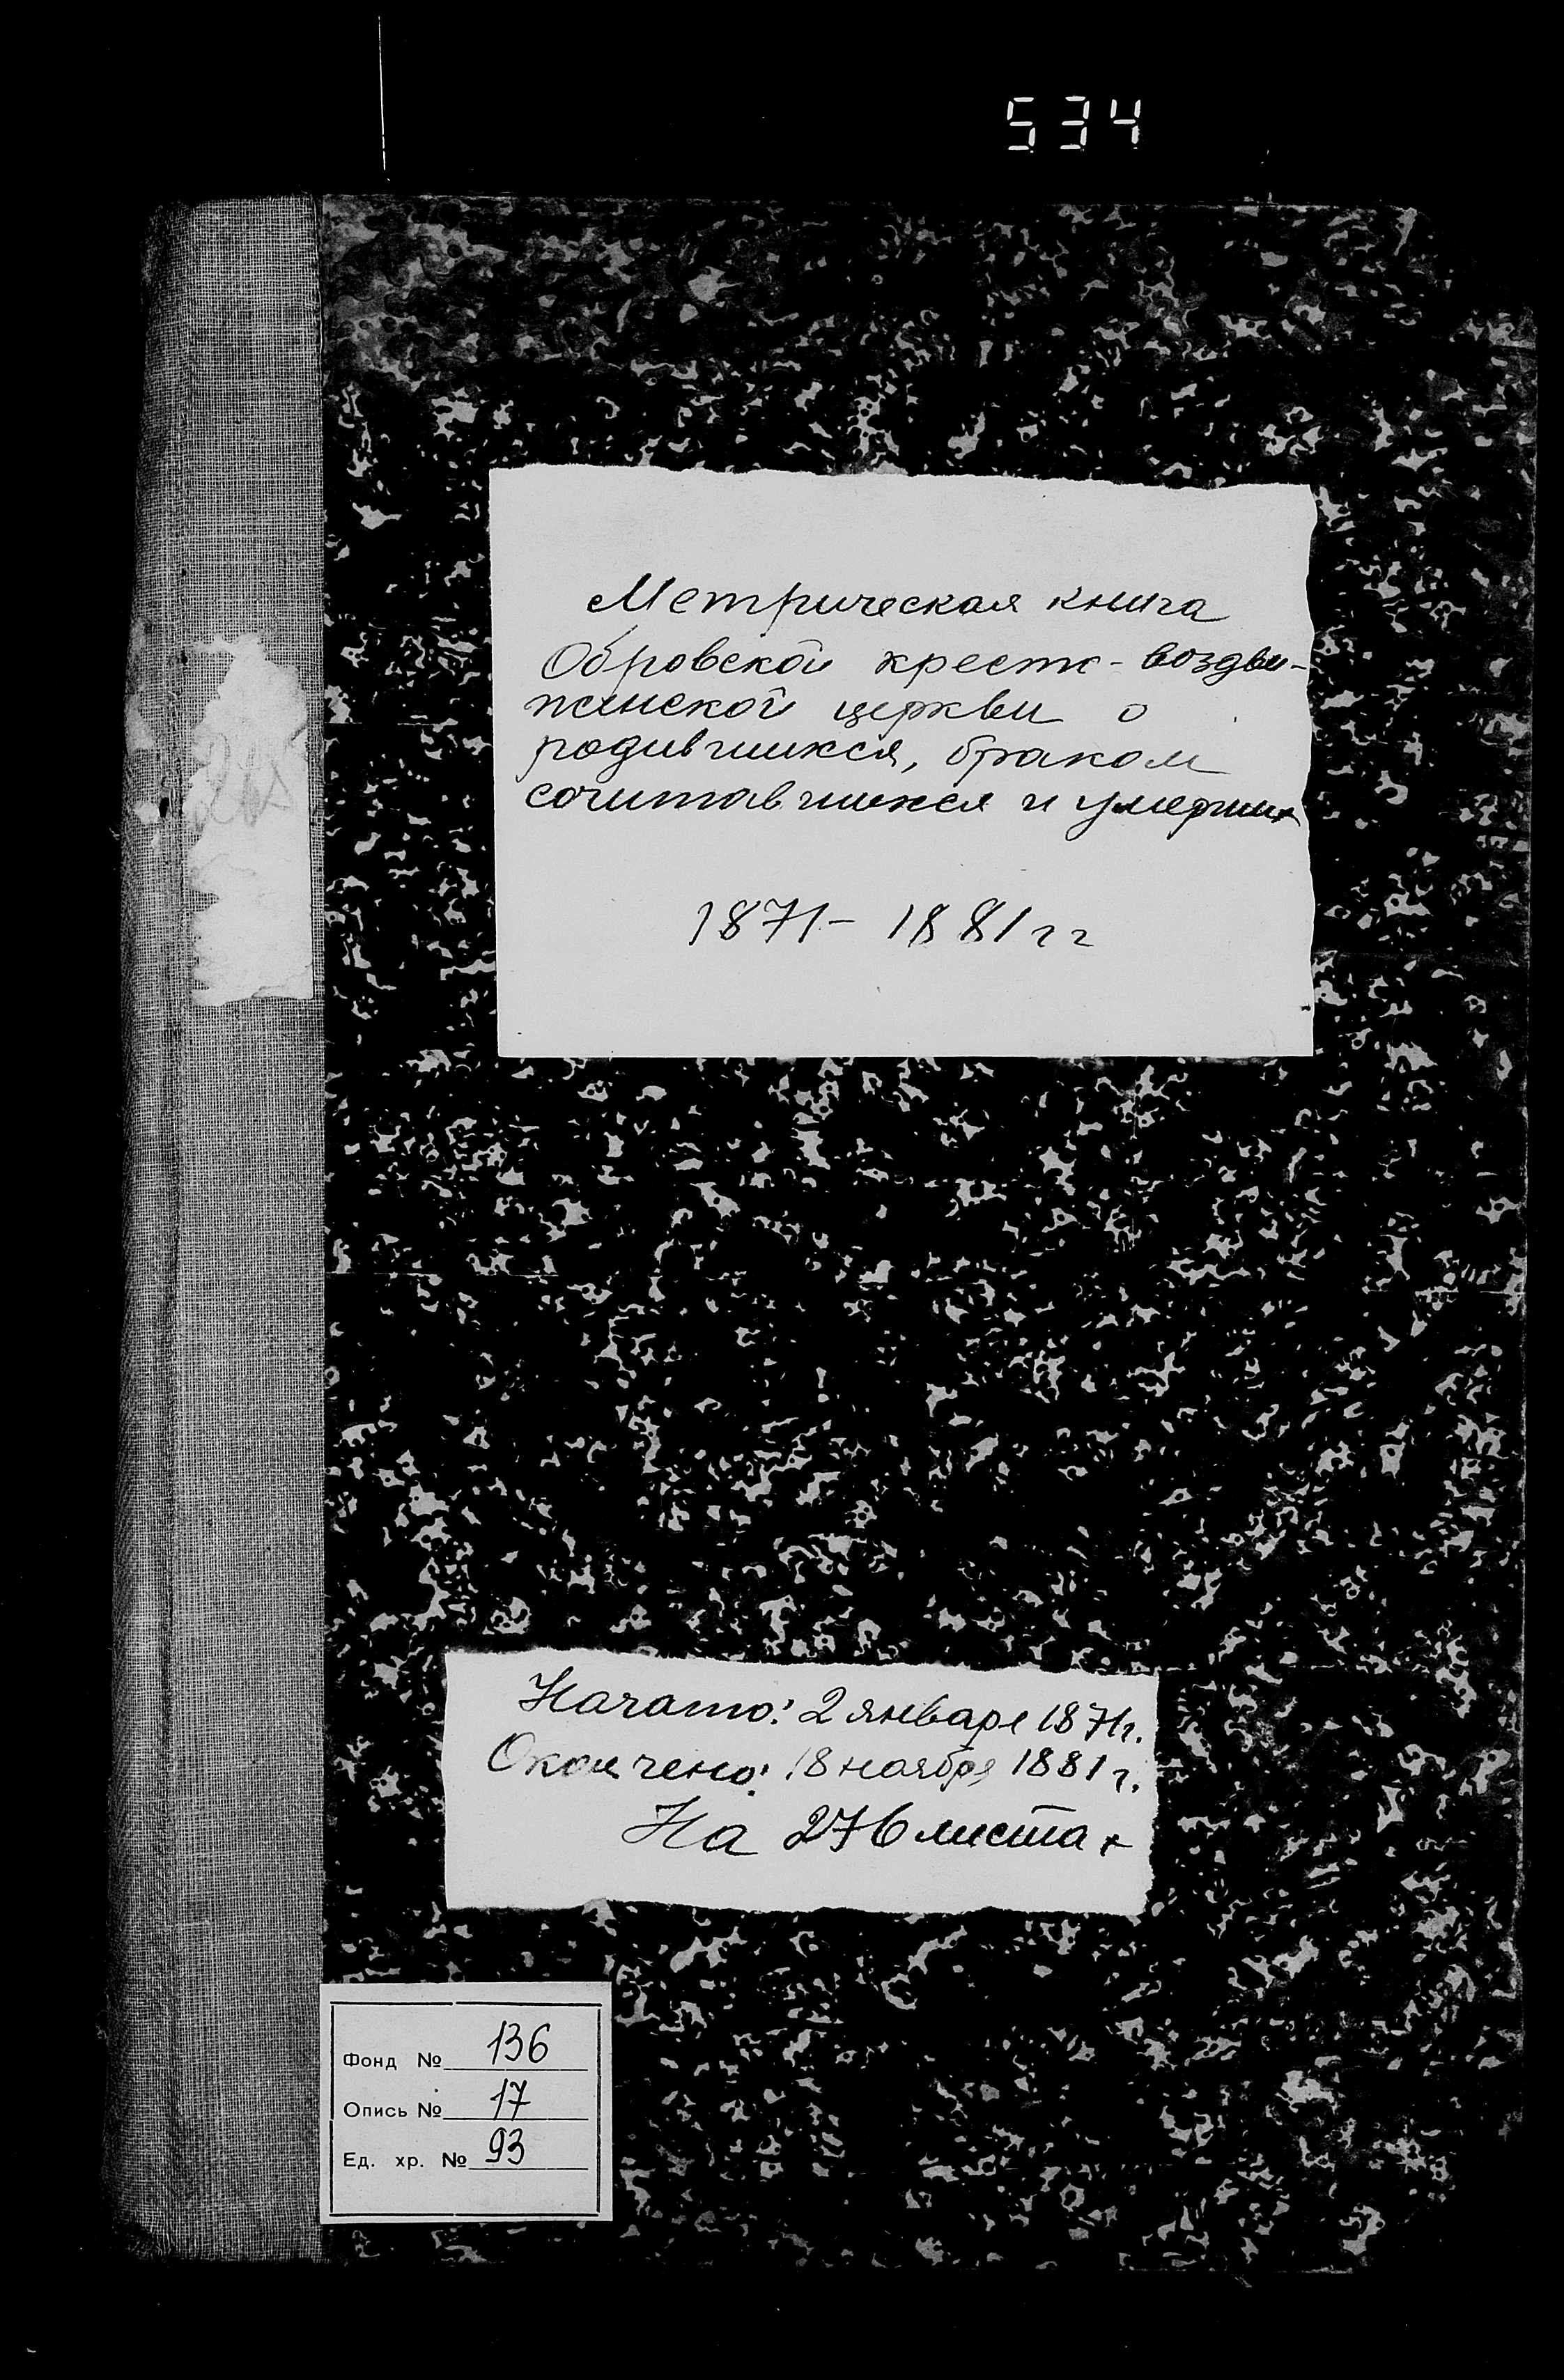 534
Метрическая книга
Обровской крестк-воздви-
женской церкви о
родившихся, браком
сочитавшихся и умерших
1871- 1881 гг
Начато: 2 января 1871г.
Окончено: 18 ноября 1881 г.
На 276 листах
Фонд № 136
Опись № 17
Ед. хр. № 93